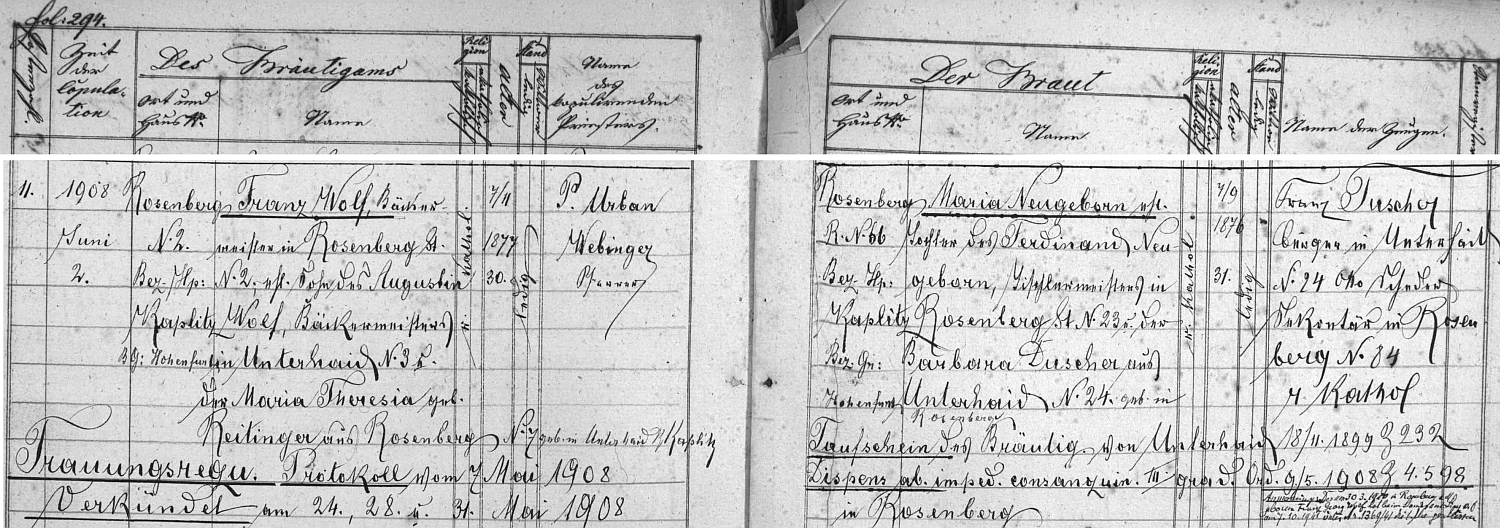 fol: 294.
Zeit der Copulation
Des Bräutigams
Ort und Haus No
Name
Religion
Alter
Stand
Name des copulirenden Priesters.
Der Braut
Ort und Haus No
Name
Religion
Alter
Stand
Name der Zeugen.
11. 1908 Rosenberg Franz Wolf, Bäcker- 7/11 P. Urban
Juni N. 2. meister in Rosenberg St. 1877 Webinger
2. Bez. Hp: N. 2. ehl. Sohn des Augustin 30. Pfarrer
Kaplitz Wolf, Bäckermeisters
BG: Hohenfurt in Unterhaid N. 3 u.
der Maria Theresia geb.
Reitinger aus Rosenberg N. 7 geb. in Unterhaid Kaplitz
Trauungsrequ. Protokoll vom 7 Mai 1908
Verkündet am 24., 28. u. 31. Mai 1908
kathol.
ledig
Rosenberg Maria Neugeborn ehl. 7/9 Franz Duscher
R. N. 66 Tochter des Ferdinand Neu 1876 berger in Unterhaid
Bez. Hp: geborn, Tischlermeisters in 31. N. 24 Otto
Kaplitz Rosenberg St. N. 23 u. der Sekretär in Rosen
Bez. Gr: Barbara Duscher aus berg N. 84
Hohenfurt Unterhaid N. 24. geb. in r. Kathol.
Rosenberg
r. Kathol.
ledig
Taufschein des Bräutig. von Unterhaid 18/11. 1899 Z 232
Dispens ab. imped. consanquin. III grad. Ord. 9/5. 1908 Z. 4.598
in Rosenberg